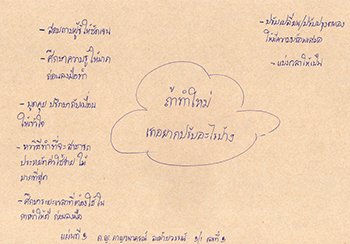 - สอบถามผู้รู้ให้ชัดเจน
- ศึกษาความรู้ให้มาก
ก่อนลงมือทำ
- พูดคุย ปรึกษากับเพื่อน
ให้เข้าใจ
- หาวิธีทำที่จะสามารถ
ประหยัดค่าใช้จ่าย ให้
มากที่สุด
- ศึกษาระยะเวลาที่ต้องใช้ใน
การทำให้ดี ก่อนลงมือ
ถ้าทำใหม่
เธออยากปรับอะไรบ้าง
- ปรับเปลี่ยน/ปรับปรุงตนเอง
ให้มีความพร้อมเสมอ
- แบ่งเวลาให้เป็น
แผ่นที่ 3 ด.ญ. กาญจนาภรณ์ เลขที่ 3